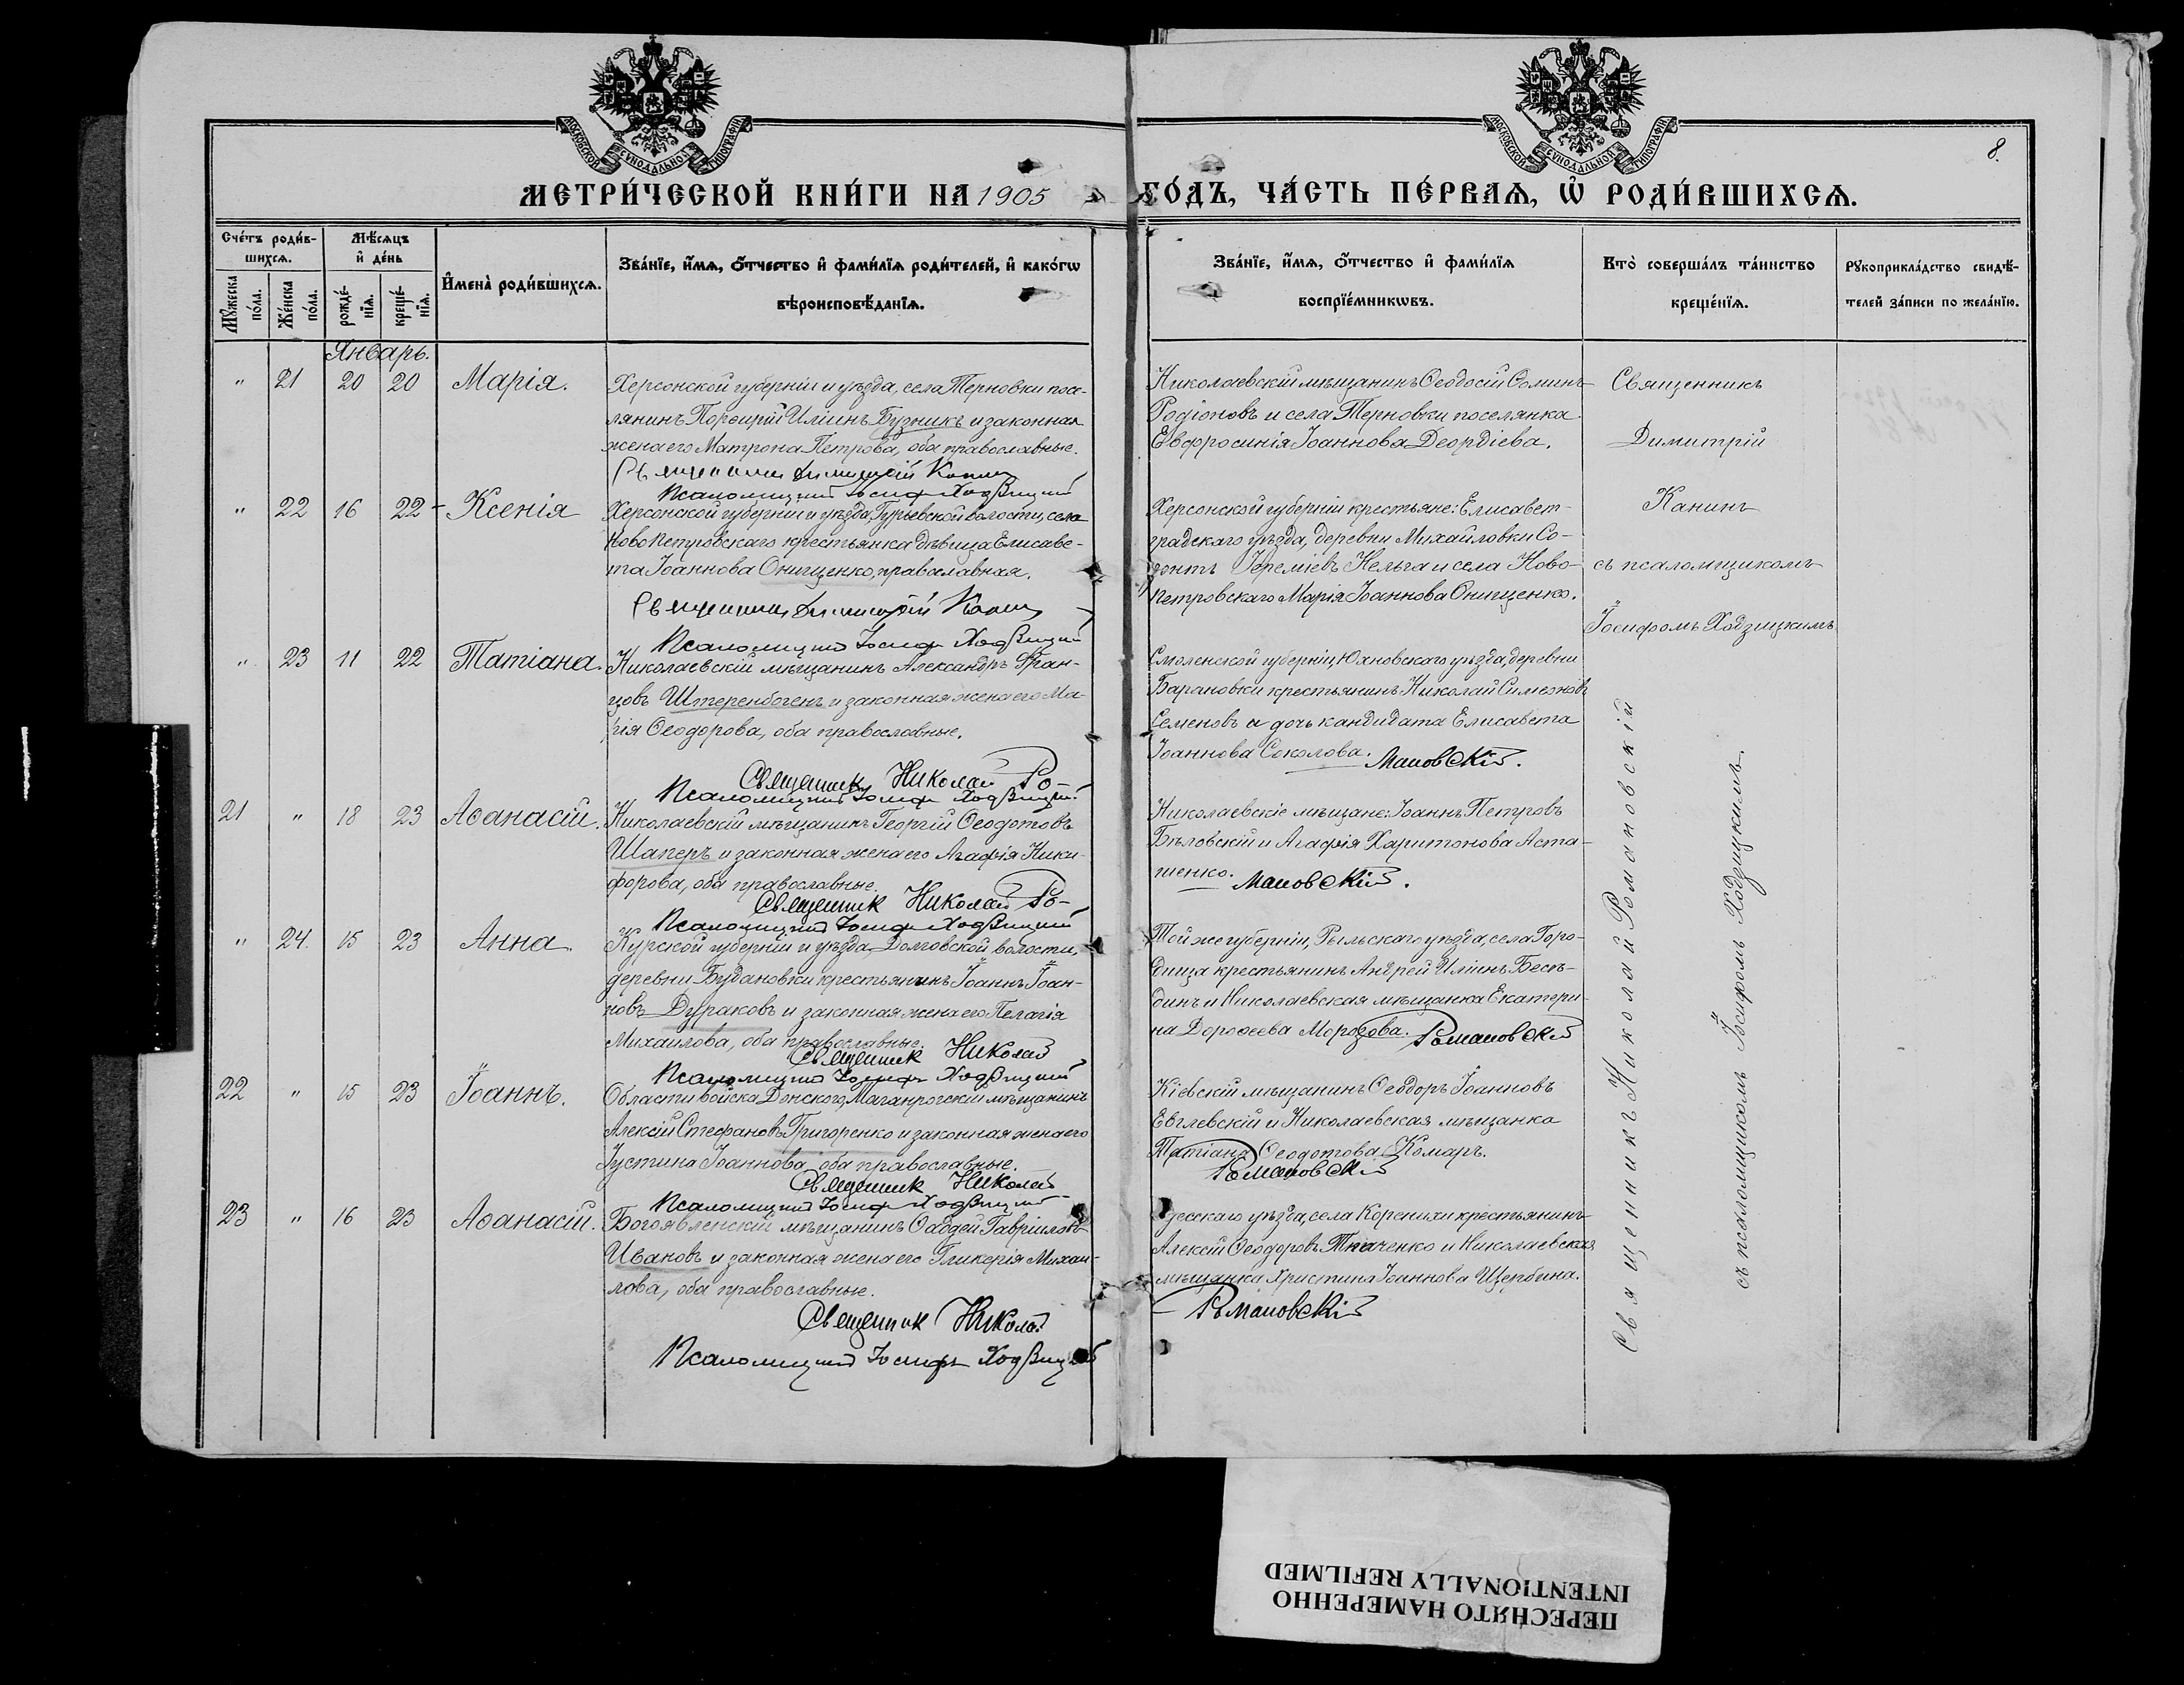 МОСКОВСКОЙ СѴНОДАЛЬНОЙ ТИПОГРАФІИ
МОСКОВСКОЙ СѴНОДАЛЬНОЙ ТИПОГРАФІИ
8.
МЕТРИ́ЧЕСКОЙ КНИ́ГИ НА 1905 ГО́ДЪ, ЧА́СТЬ ПЕ́РВАѦ, Ѡ҆ РОДИ́ВШИХСѦ.
Сче́тъ роди́в-
шихсѧ.
Мꙋ́жеска
по́ла.
Же́нска
по́ла.
Мѣ́сѧцъ
и҆ де́нь
рожде́-
нїѧ.
креще́-
нїѧ.
И҆мена̀ роди́вшихсѧ.
Зва́нїе, и҆́мѧ, ѻ҆́тчество и҆ фами́лїѧ роди́телей, и҆ како́гѡ
вѣроисповѣ́данїѧ.
Зва́нїе, и҆́мѧ, ѻ҆́тчество и҆ фами́лїѧ
воспрїе́мникѡвъ.
Кто̀ соверша́лъ та́инство
креще́нїѧ.
Рꙋкоприкла́дство свидѣ́-
телей за́писи по жела́нїю.
Январь.
" 21 20 20 Марія.
Херсонской губерніи и уѣзда, села Терновки посе-
лянинъ Порфирій Иліинъ Бузникъ и законная
жена его Матрона Петрова, оба православные.
Священникъ Димитрій Канинъ
Псаломщикъ Іосифъ Ходзицкій
Николаевскій мѣщанинъ Ѳеодосій Ѳоминъ
Родіоновъ и села Терновки поселянка
Евфросинія Іоаннова Деордіева.
Священникъ
Димитрій
Канинъ
съ псаломщикомъ
Іосифомъ Ходзицкимъ
" 22 16 22 Ксенія
Херсонской губерніи и уѣзда, Гурьевской волости, села
Ново Петровскаго крестьянка дѣвица Елисаве-
та Іоаннова Онищенко, православная.
Священникъ Димитрій Канинъ
Псаломщикъ Іосифъ Ходзицкій
Херсонской губерніи крестьяне: Елисавет-
градскаго уѣзда, деревни Михайловки Со-
зонтъ Іереміевъ Нельга и села Ново-
Петровскаго Марія Іоаннова Онищенко.
" 23 11 22 Татіана.
Николаевскій мѣщанинъ Александръ Фран-
цовъ Штеренбогенъ и законная жена его Ма-
рія Ѳеодорова, оба православные.
Священникъ Николай Ро-
Псаломщикъ Іосифъ Ходзицкій
Смоленской губерніи, Юхновскаго уѣзда, деревни
Барановки крестьянинъ Николай Симеоновъ
Семеновъ и дочь кандидата Елисавета
Іоаннова Соколова. мановскій.
21 " 18 23 Аѳанасій.
Николаевскій мѣщанинъ Георгій Ѳеодотовъ
Шаперъ и законная жена его Агафія Ники-
форова, оба православные.
Священникъ Николай Ро-
Псаломщикъ Іосифъ Ходзицкій
Николаевскіе мѣщане: Іоаннъ Петровъ
Бѣловскій и Агафія Харитонова Аста-
шенко. мановскій.
" 24. 15 23 Анна
Курской губерніи и уѣзда, Долговской волости,
деревни Будановки крестьянинъ Іоаннъ Іоан-
новъ Дураковъ и законная жена его Пелагія
Михаилова, оба православные.
Священникъ Николай
Псаломщикъ Іосифъ Ходзицкій
Той же губерніи, Рыльскаго уѣзда, села Горо-
дища крестьянинъ Андрей Иліинъ Бесѣ-
динъ и Николаевская мѣщанка Екатери-
на Дороѳеева Морозова. Романовскій
22 " 15 23 Іоаннъ.
Области войска Донского, Таганрогскій мѣщанинъ
Алексій Стефановъ Григоренко и законная жена его
Іустина Іоаннова, оба православные.
Священникъ Николай
Псаломщикъ Іосифъ Ходзицкій
Кіевскій мѣщанинъ Ѳеодоръ Іоанновъ
Евглевскій и Николаевская мѣщанка
Татіана Ѳеодотова Комаръ.
Романовскій
23 " 16 23 Аѳанасій.
Богоявленскій мѣщанинъ Ѳаддей Гавріиловъ
Ивановъ и законная жена его Гликерія Михаи-
лова, оба православные.
Священникъ Николай
Псаломщикъ Іосифъ Ходзицкій
Одесскаго уѣзда, села Коренихи крестьянинъ
Алексій Ѳеодоровъ Ткаченко и Николаевская
мѣщанка Христина Іоаннова Щербина.
Романовскій
Священникъ Николай Романовскій
съ псаломщикомъ Іосифомъ Ходзицкимъ.
ПЕРЕСНЯТО НАМЕРЕННО
INTENTIONALLY REFILMED